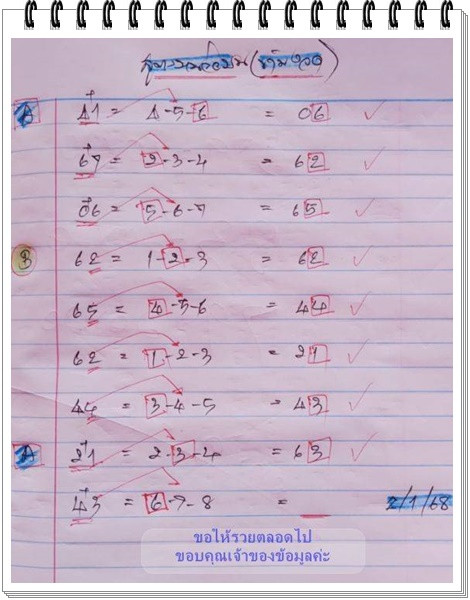 A 41 = 4-5-6 = 06 ✓
67 = 2-3-4 = 62 ✓
06 = 5-6-7 = 65 ✓
B 62 = 1-2-3 = 62 ✓
65 = 4-5-6 = 44 ✓
62 = 1-2-3 = 21 ✓
44 = 3-4-5 = 43 ✓
A 21 = 2-3-4 = 63 ✓
43 = 6-7-8 = 2/1/68
ขอให้รวยตลอดไป
ขอบคุณเจ้าของข้อมูลค่ะ